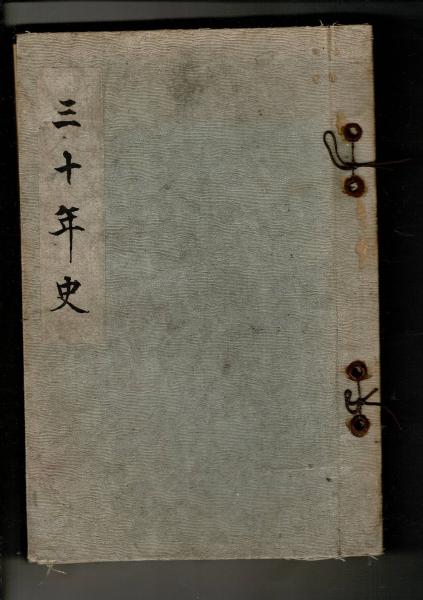 三十年史